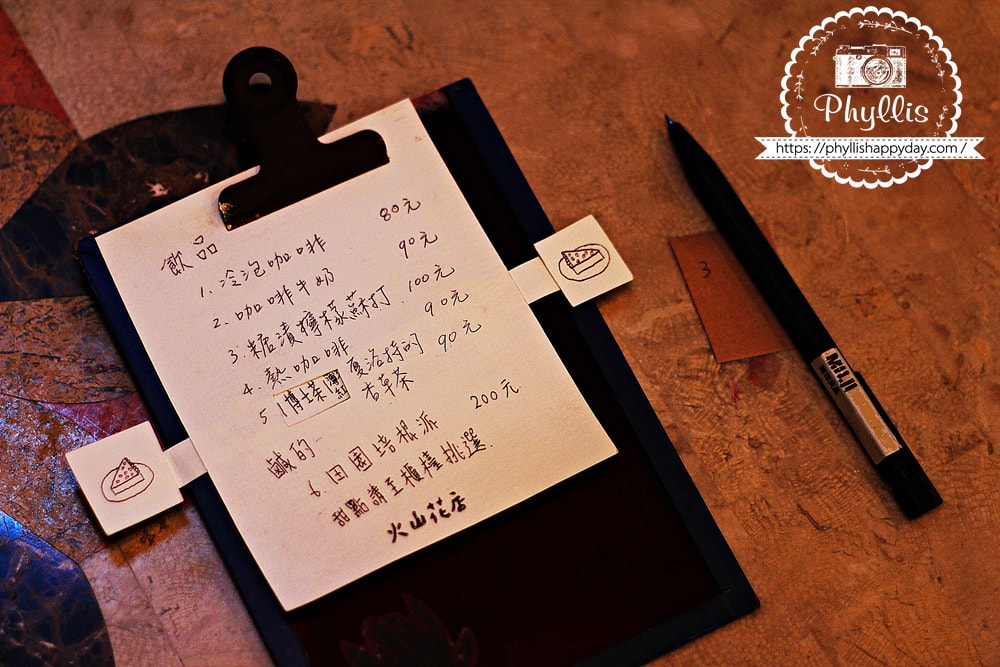 飲品
1. 冷泡咖啡 80元
2. 咖啡牛奶 90元
3. 糖漬檸檬蘇打 100元
4. 熱咖啡 90元
5 博士茶 夏洛特的 90元
香草茶
鹹的
6. 田園培根派 200元
甜點請至櫃檯挑選.
火山花店
3
MUJI
Phyllis
https://phyllishappyday.com/